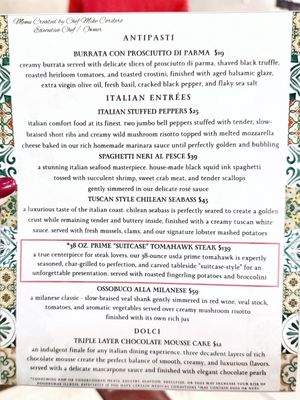 Menu Created by Chef Mike Cordero
Executive Chef / Owner
ANTIPASTI
BURRATA CON PROSCIUTTO DI PARMA $19
creamy burrata served with delicate slices of prosciutto di parma, shaved black truffle,
roasted heirloom tomatoes, and toasted crostini, finished with aged balsamic glaze,
extra virgin olive oil, fresh basil, cracked black pepper, and flaky sea salt
ITALIAN ENTRÉES
ITALIAN STUFFED PEPPERS $25
italian comfort food at its finest. two jumbo bell peppers stuffed with tender, slow-
braised short ribs and creamy wild mushroom risotto topped with melted mozzarella
cheese baked in our rich homemade marinara sauce until perfectly golden and bubbling
SPAGHETTI NERI AL PESCE $39
a stunning italian seafood masterpiece. house-made black squid ink spaghetti
tossed with succulent shrimp, sweet crab meat, and tender scallops
gently simmered in our delicate rosé sauce
TUSCAN STYLE CHILEAN SEABASS $45
a luxurious taste of the italian coast. chilean seabass is perfectly seared to create a golden
crust while remaining tender and buttery inside, finished with a creamy tuscan white
sauce. served with fresh mussels, clams, and our signature lobster mashed potatoes
*38 OZ. PRIME "SUITCASE" TOMAHAWK STEAK $139
a true centerpiece for steak lovers. our 38-ounce usda prime tomahawk is expertly
seasoned, char-grilled to perfection, and carved tableside "suitcase-style" for an
unforgettable presentation. served with roasted fingerling potatoes and broccolini
OSSOBUCO ALLA MILANESE $59
a milanese classic - slow-braised veal shank gently simmered in red wine, veal stock,
tomatoes, and aromatic vegetables served over creamy mushroom risotto
finished with its own rich jus
DOLCI
TRIPLE LAYER CHOCOLATE MOUSSE CAKE $12
an indulgent finale for any italian dining experience. three decadent layers of rich
chocolate mousse create the perfect balance of smooth, creamy, and luxurious flavors.
served with a delicate mascarpone sauce and finished with elegant chocolate pearls
*CONSUMING RAW OR UNDERCOOKED MEATS, POULTRY, SEAFOOD, SHELLFISH, OR EGGS MAY INCREASE YOUR RISK OF
FOODBORNE ILLNESS, ESPECIALLY IF YOU HAVE CERTAIN MEDICAL CONDITIONS *MAY CONTAIN EGGS OR NUTS